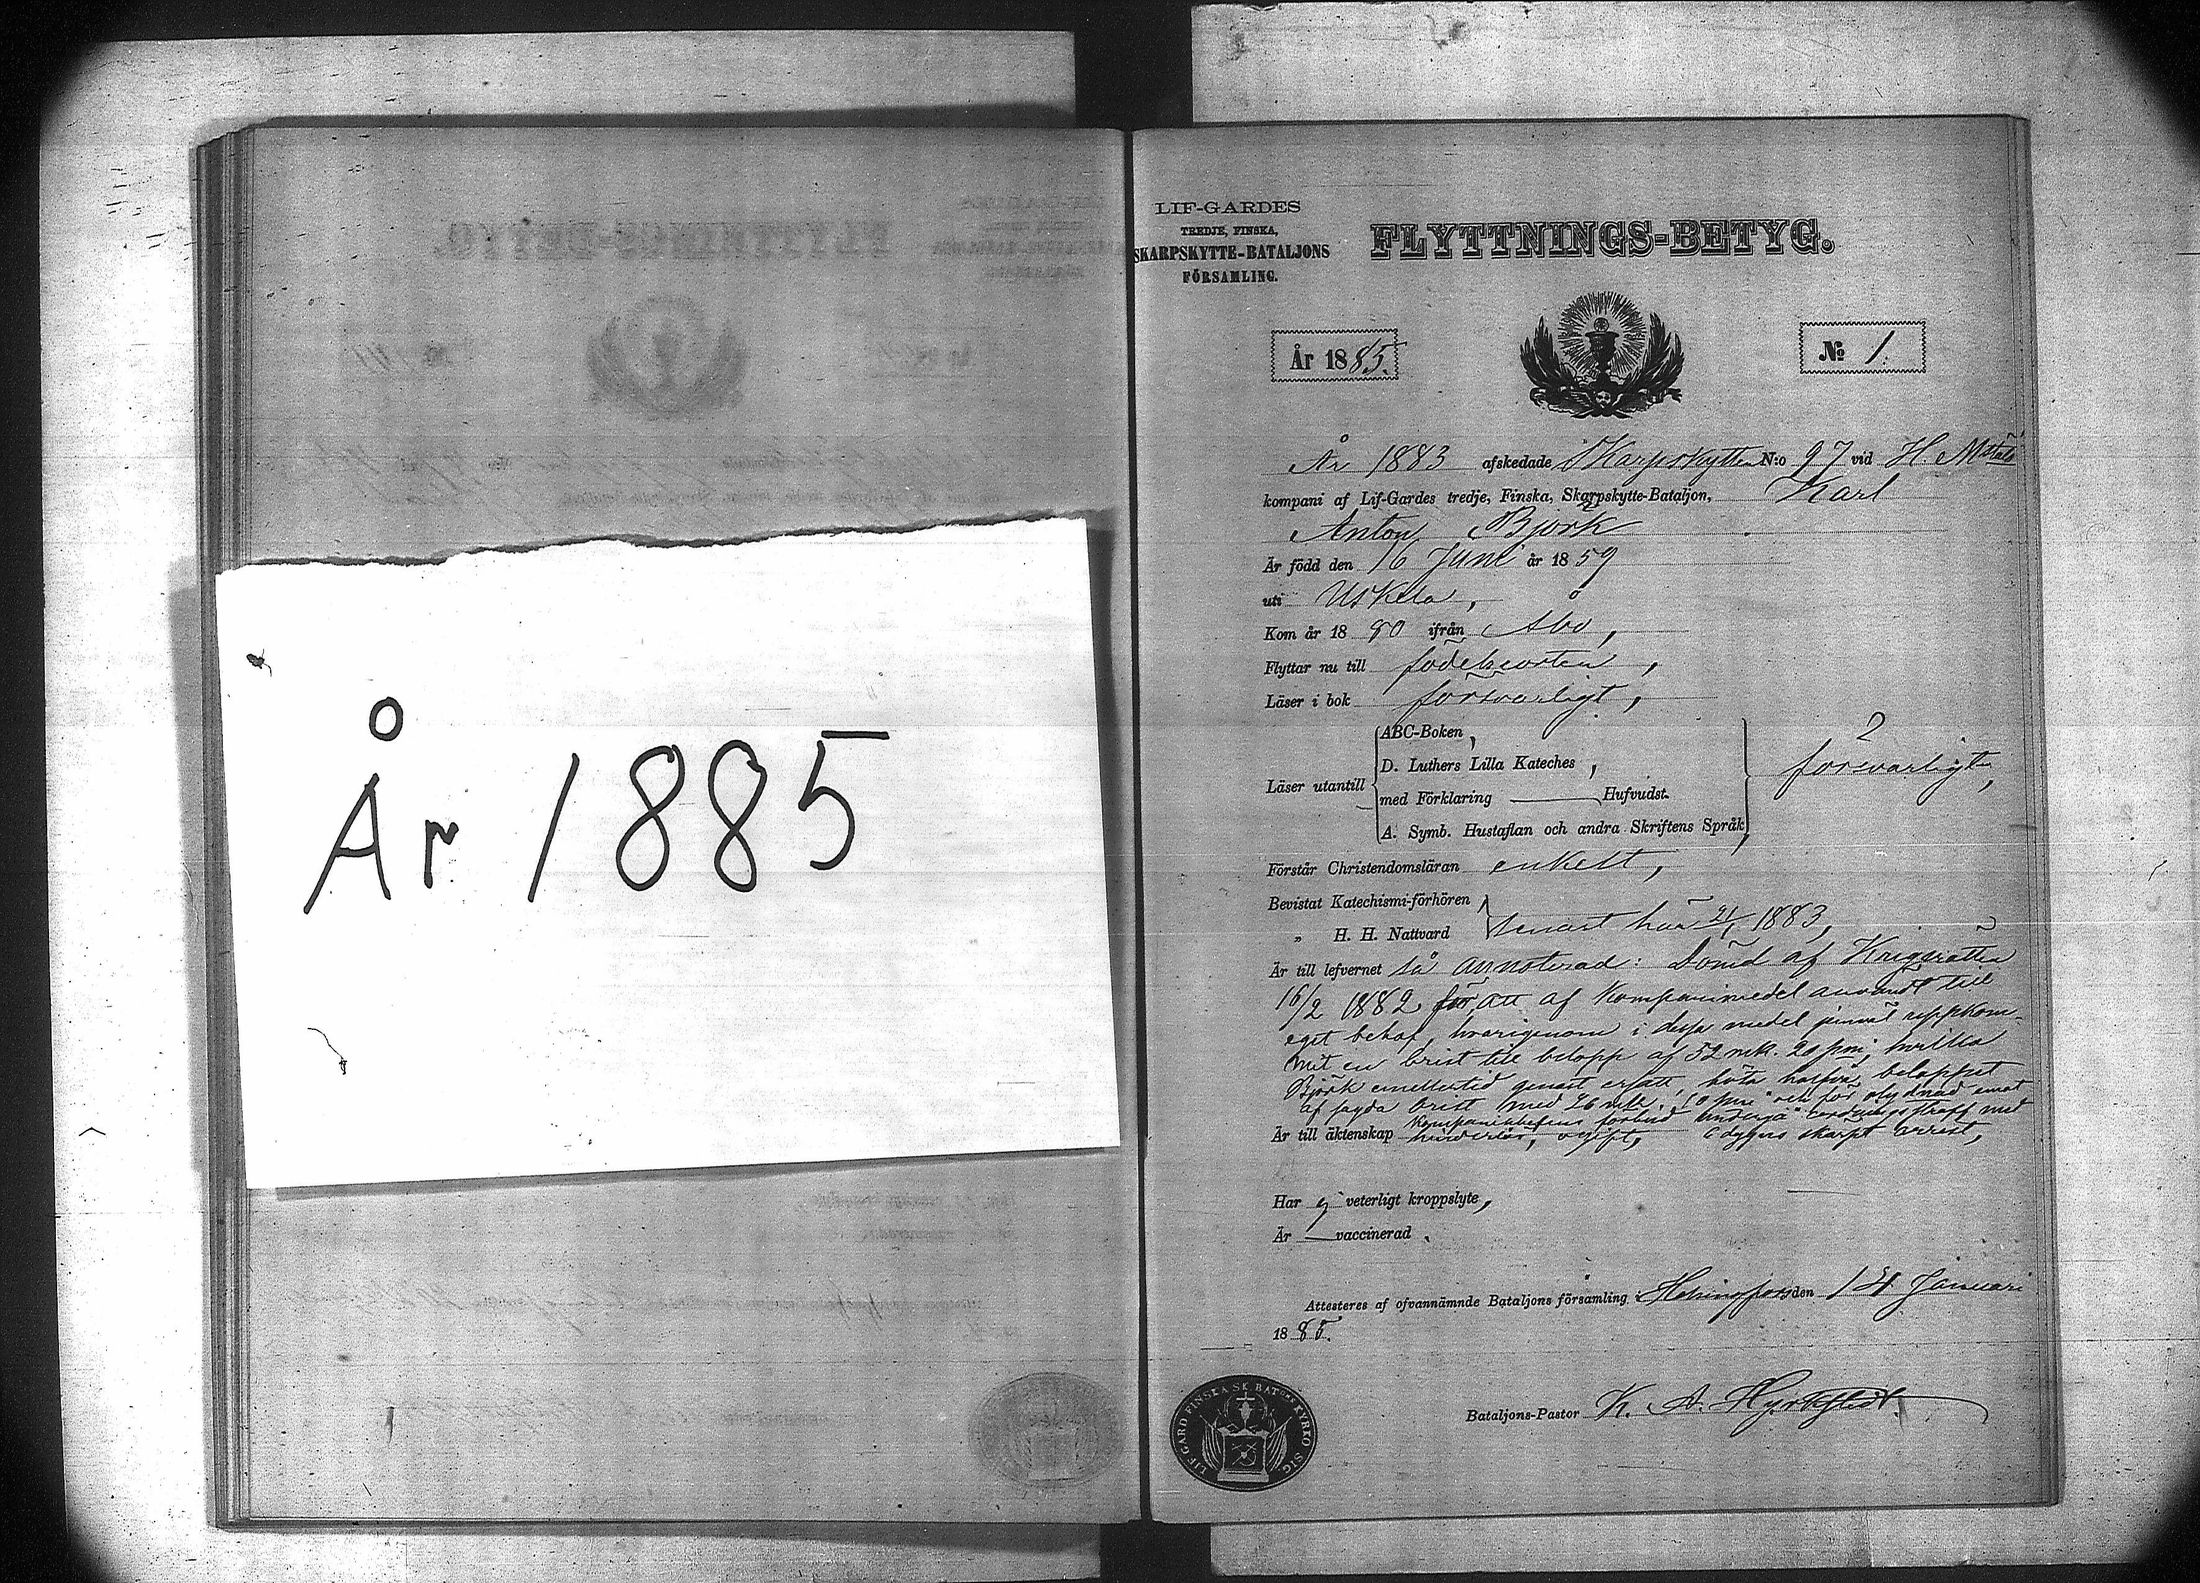 År 1885
LIF-GARDES
TREDJE, FINSKA,
SKARPSKYTTE-BATALJONS
FÖRSAMLING.
FLYTTNINGS-BETYG.
År 1885.
No 1.
År 1883 afskedade Skarpskytten N:o 97 vid H. M:ts
kompani af Lif-Gardes tredje, Finska, Skarpskytte-Bataljon, Karl
Anton Björk
Är född den 16 Juni år 1859
uti Uskela,
Kom år 1880 ifrån Åbo,
Flyttar nu till födelseorten,
Läser i bok försvarligt,
Läser utantill
ABC-Boken,
D. Luthers Lilla Kateches,
med Förklaring Hufvudst.
A. Symb. Hustaflan och andra Skriftens Språk,
försvarligt,
Förstår Christendomsläran enkelt,
Bevistat Katechismi-förhören
„ H. H. Nattvard senast här 1883,
Är till lefvernet så annoterad: Dömd af Krigsrätten
16/2 1882 för att af kompanimedel användt till
eget behof, hvarigenom i dessa medel uppkom-
mit en brist till belopp af 52 mk. 20 pni, hvilka
Björk emellertid genast ersatt, böta halfva beloppet
af sagda brist med 26 mk. 10 pni och för olydnad emot
Kompanichefens förbud undergå ordningsstraff med
6 dygns skarpt arrest,
Är till äktenskap hinderlös, ogift,
Har ej veterligt kroppslyte,
Är vaccinerad.
Attesteras af ofvannämnde Bataljons församling i Helsingfors den 14 Januari
1885.
Bataljons-Pastor K. A. Hyrkstedt.
LIF. GARD FINSKA SK. BAT:ONS KYRKO SIG.